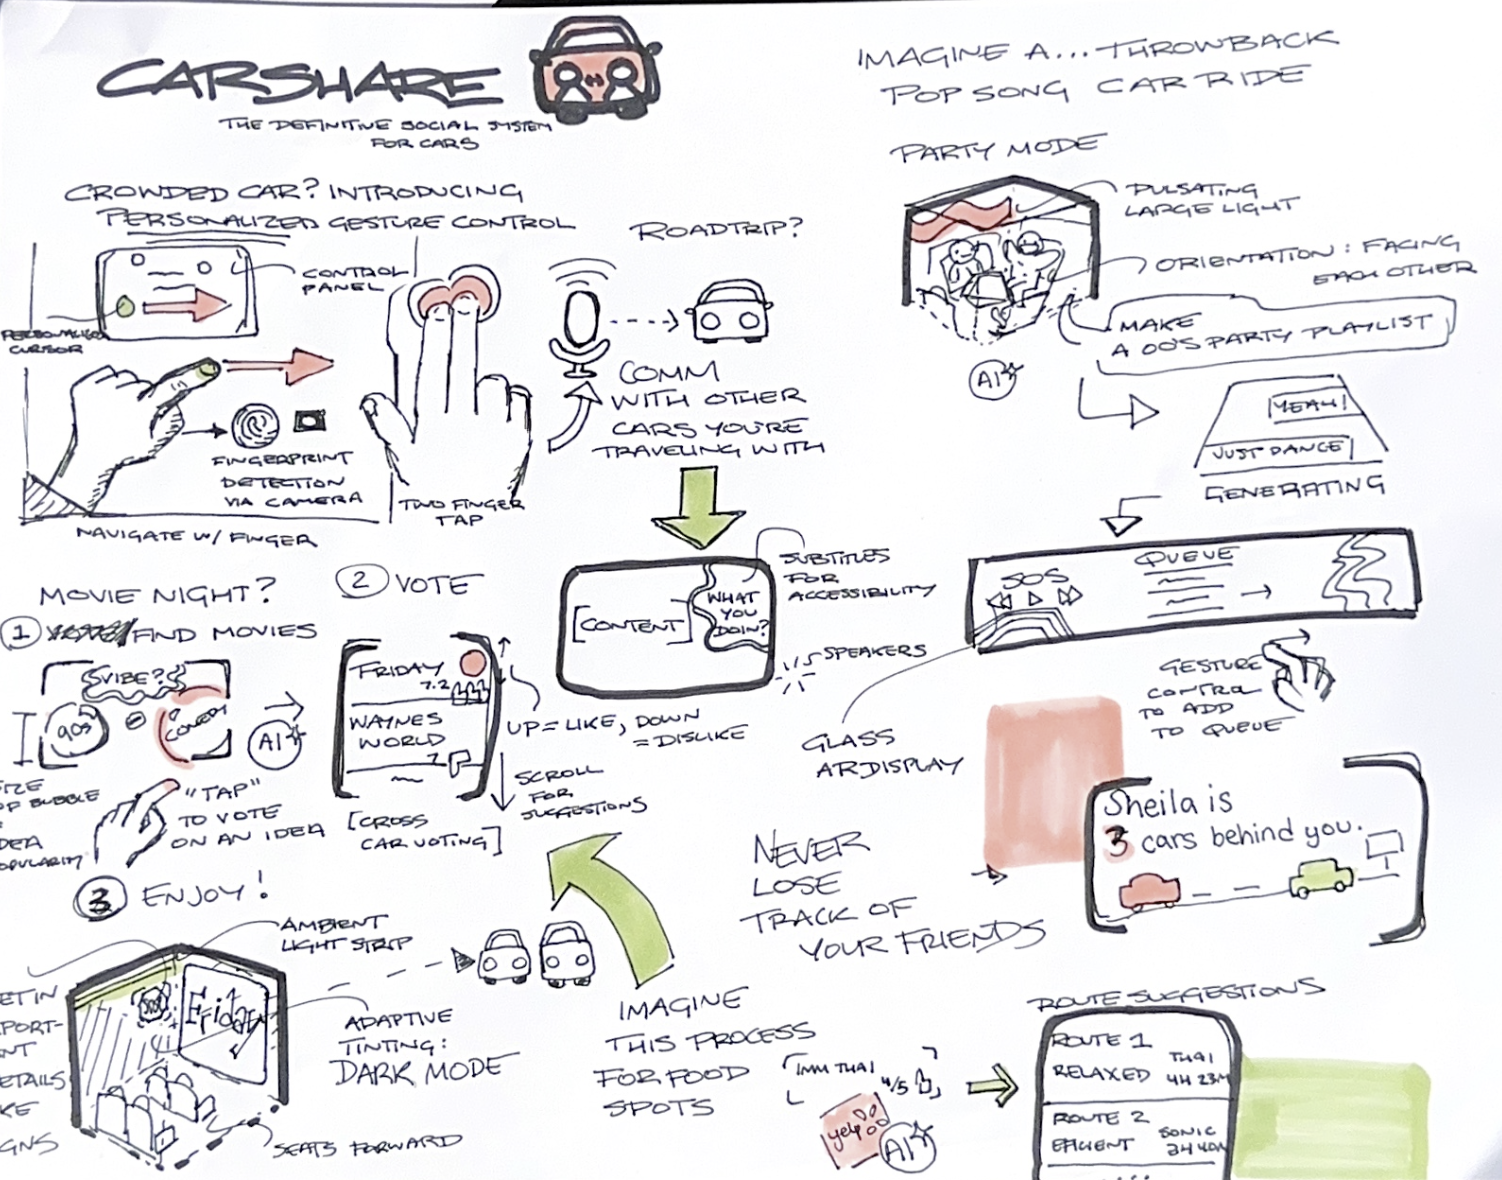 CARSHARE
THE DEFINITIVE SOCIAL SYSTEM
FOR CARS
CROWDED CAR? INTRODUCING
PERSONALIZED GESTURE CONTROL
CONTROL
PANEL
PERSONALIZED
CURSOR
FINGERPRINT
DETECTION
VIA CAMERA
NAVIGATE W/ FINGER
TWO FINGER
TAP
ROADTRIP?
COMM
WITH OTHER
CARS YOU'RE
TRAVELING WITH
[CONTENT]
WHAT
YOU
DOIN?
SUBTITLES
FOR
ACCESSIBILITY
SPEAKERS
IMAGINE A... THROWBACK
POP SONG CAR RIDE
PARTY MODE
PULSATING
LARGE LIGHT
ORIENTATION: FACING
EACH OTHER
MAKE
A 00'S PARTY PLAYLIST
AI
YEAH!
JUST DANCE
GENERATING
SOS
QUEUE
GESTURE
CONTROL
TO ADD
TO QUEUE
GLASS
AR DISPLAY
MOVIE NIGHT?
1 FIND MOVIES
VIBE?
90s
COMEDY
AI
SIZE
OF BUBBLE
=
IDEA
POPULARITY
"TAP"
TO VOTE
ON AN IDEA
2 VOTE
FRIDAY
7.2
WAYNES
WORLD
7
UP = LIKE, DOWN
= DISLIKE
SCROLL
FOR
SUGGESTIONS
[CROSS
CAR VOTING]
3 ENJOY!
AMBIENT
LIGHT STRIP
Friday
ADAPTIVE
TINTING:
DARK MODE
SEATS FORWARD
ET IN
PORT-
NT
ETAILS
KE
GNS
IMAGINE
THIS PROCESS
FOR FOOD
SPOTS
IMM THAI
4/5
yelp
AI
NEVER
LOSE
TRACK OF
YOUR FRIENDS
Sheila is
3 cars behind you.
ROUTE SUGGESTIONS
ROUTE 1
RELAXED
THAI
4H 23M
ROUTE 2
EFFICIENT
SONIC
2H 40M